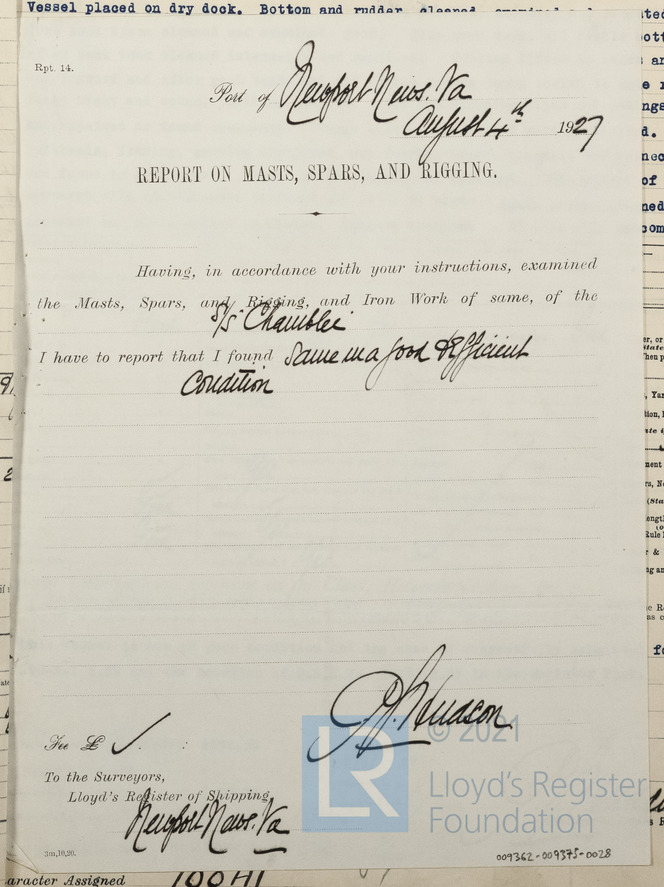 Vessel placed on dry dock. Bottom and rudder cleaned, examined and
Rpt. 14.
Port of Newport News. Va
August 4th 1927
REPORT ON MASTS, SPARS, AND RIGGING.
Having, in accordance with your instructions, examined
the Masts, Spars, and Rigging, and Iron Work of same, of the
S/S Chamblee
I have to report that I found same in a good & Efficient
Condition
Fee £ ✓. :
To the Surveyors,
Lloyd's Register of Shipping,
Newport News. Va
3m,10,20.
© 2021
LR
Lloyd's Register
Foundation
009362-009375-0028
aracter Assigned 100A1